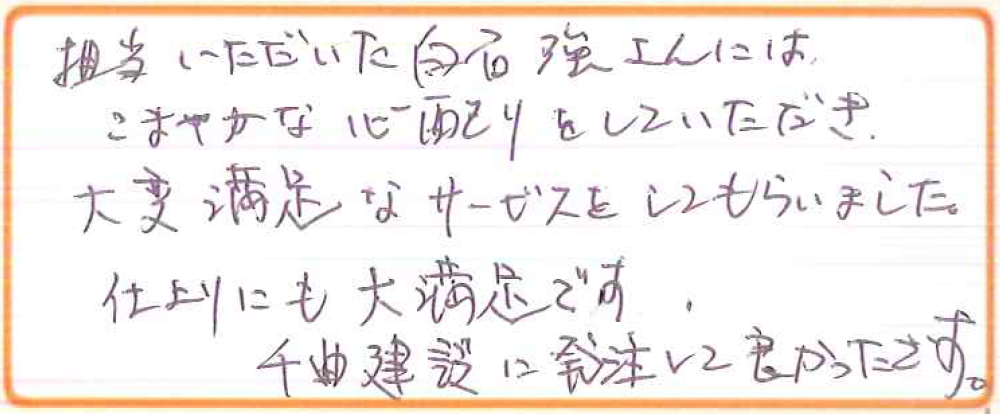 担当いただいた白石強さんには、
こまやかな心配りをしていただき、
大変満足なサービスをしてもらいました。
仕上りにも大満足です、
千曲建設に発注して良かったです。